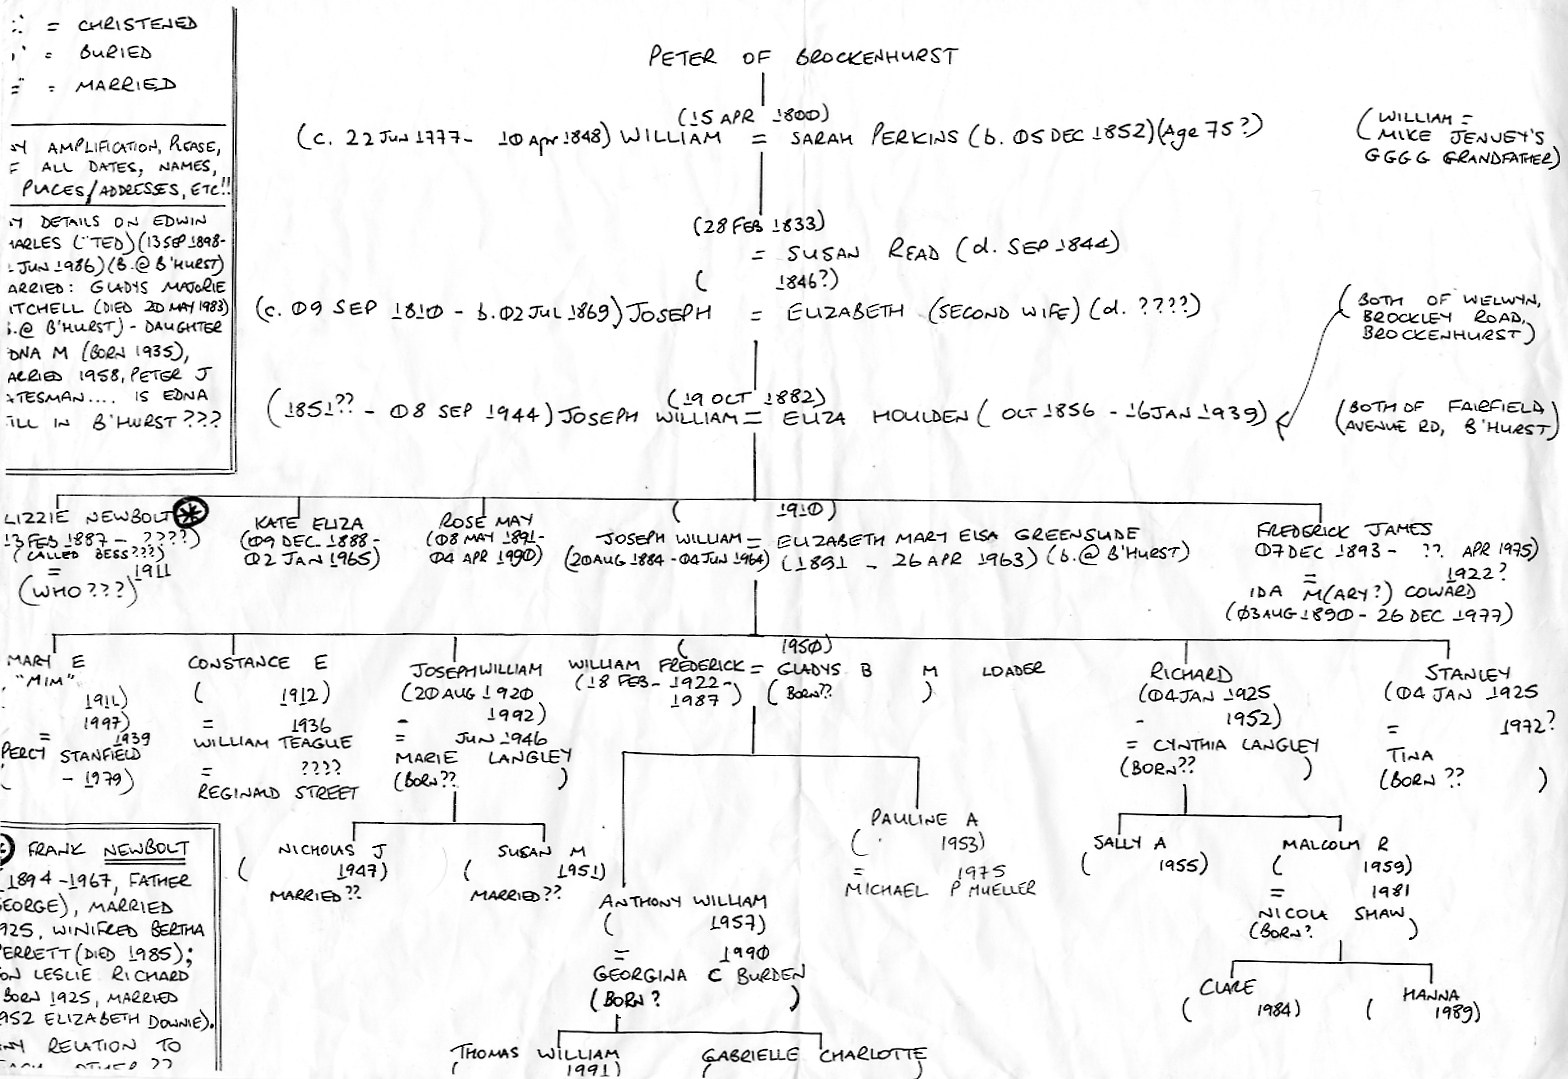 = CHRISTENED
= BURIED
= MARRIED
AMPLIFICATION, PLEASE,
ALL DATES, NAMES,
PLACES/ADDRESES, ETC!!
DETAILS ON EDWIN
("TED) (13 SEP 1898-
JUN 1986) (B.@ B'HURST)
ARRIED: GLADYS MAJORIE
ITCHELL (DIED 20 MAY 1983)
B.@ B'HURST) - DAUGHTER
DNA M (BORN 1935),
ARRIED 1958, PETER J
TESMAN.... IS EDNA
ILL IN B'HURST ???
PETER OF BROCKENHURST
(15 APR 1800)
(C. 22 JUN 1777- 10 Apr 1848) WILLIAM = SARAH PERKINS (b. 05 DEC 1852) (Age 75?)
(WILLIAM =
MIKE JENVEY'S
GGGG GRANDFATHER)
(28 FEB 1833)
= SUSAN READ (d. SEP 1844)
( 1846?)
(c. 09 SEP 1810 - b. 02 JUL 1869) JOSEPH = ELIZABETH (SECOND WIFE) (d. ????)
(BOTH OF WELWYN,
BROCKLEY ROAD,
BROCKENHURST)
(19 OCT 1882)
(1851?? - 08 SEP 1944) JOSEPH WILLIAM = ELIZA HOULDEN (OCT 1856 - 16 JAN 1939)
(BOTH OF FAIRFIELD,
AVENUE RD, B'HURST)
LIZZIE NEWBOLT
13 FEB 1887 - ????)
(CALLED BESS???)
= 1911
(WHO???)
KATE ELIZA
(09 DEC 1888-
02 JAN 1965)
ROSE MAY
(08 MAY 1891-
04 APR 1990)
( 1910)
JOSEPH WILLIAM = ELIZABETH MARY ELSA GREENSLADE
(20 AUG 1884 - 04 JUN 1964) (1891 - 26 APR 1963) (b.@ B'HURST)
FREDERICK JAMES
07 DEC 1893 - ?? APR 1975)
= 1922?
IDA M(ARY?) COWARD
(03 AUG 1890 - 26 DEC 1977)
MARY E
"MIM"
1911
1997)
= 1939
PERCY STANFIELD
( - 1979)
CONSTANCE E
( 1912)
= 1936
WILLIAM TEAGUE
= ????
REGINALD STREET
JOSEPH WILLIAM
(20 AUG 1920
- 1992)
= JUN 1946
MARIE LANGLEY
(BORN?? )
( 1950)
WILLIAM FREDERICK = GLADYS B M LOADER
(18 FEB - 1922 - 1987) (BORN?? )
RICHARD
(04 JAN 1925
- 1952)
= CYNTHIA LANGLEY
(BORN?? )
STANLEY
(04 JAN 1925
= 1972?
TINA
(BORN ?? )
NICHOLAS J
( 1947)
MARRIED??
SUSAN M
( 1951)
MARRIED??
PAULINE A
( 1953)
= 1975
MICHAEL P MUELLER
ANTHONY WILLIAM
( 1957)
= 1990
GEORGINA C BURDEN
(BORN? )
SALLY A
( 1955)
MALCOLM R
( 1959)
= 1981
NICOLA SHAW
(BORN? )
CLARE
( 1984)
HANNA
( 1989)
THOMAS WILLIAM
( 1991)
GABRIELLE CHARLOTTE
( )
FRANK NEWBOLT
1894-1967, FATHER
EORGE), MARRIED
925, WINIFRED BERTHA
ERRETT (DIED 1985);
ON LESLIE RICHARD
BORN 1925, MARRIED
952 ELIZABETH DOWNIE).
NY RELATION TO